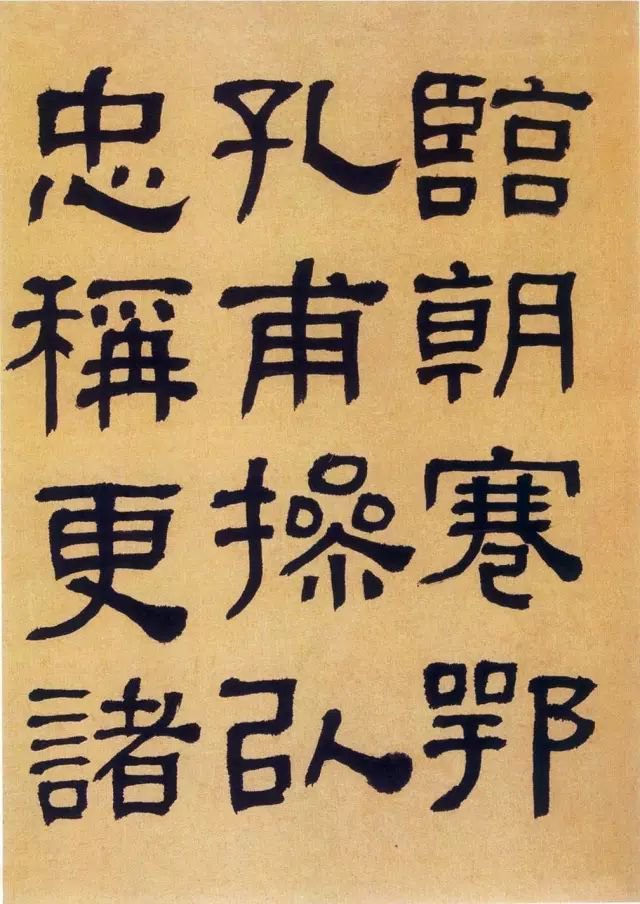 臨朝蹇鄂
孔甫操以
忠稱更諸